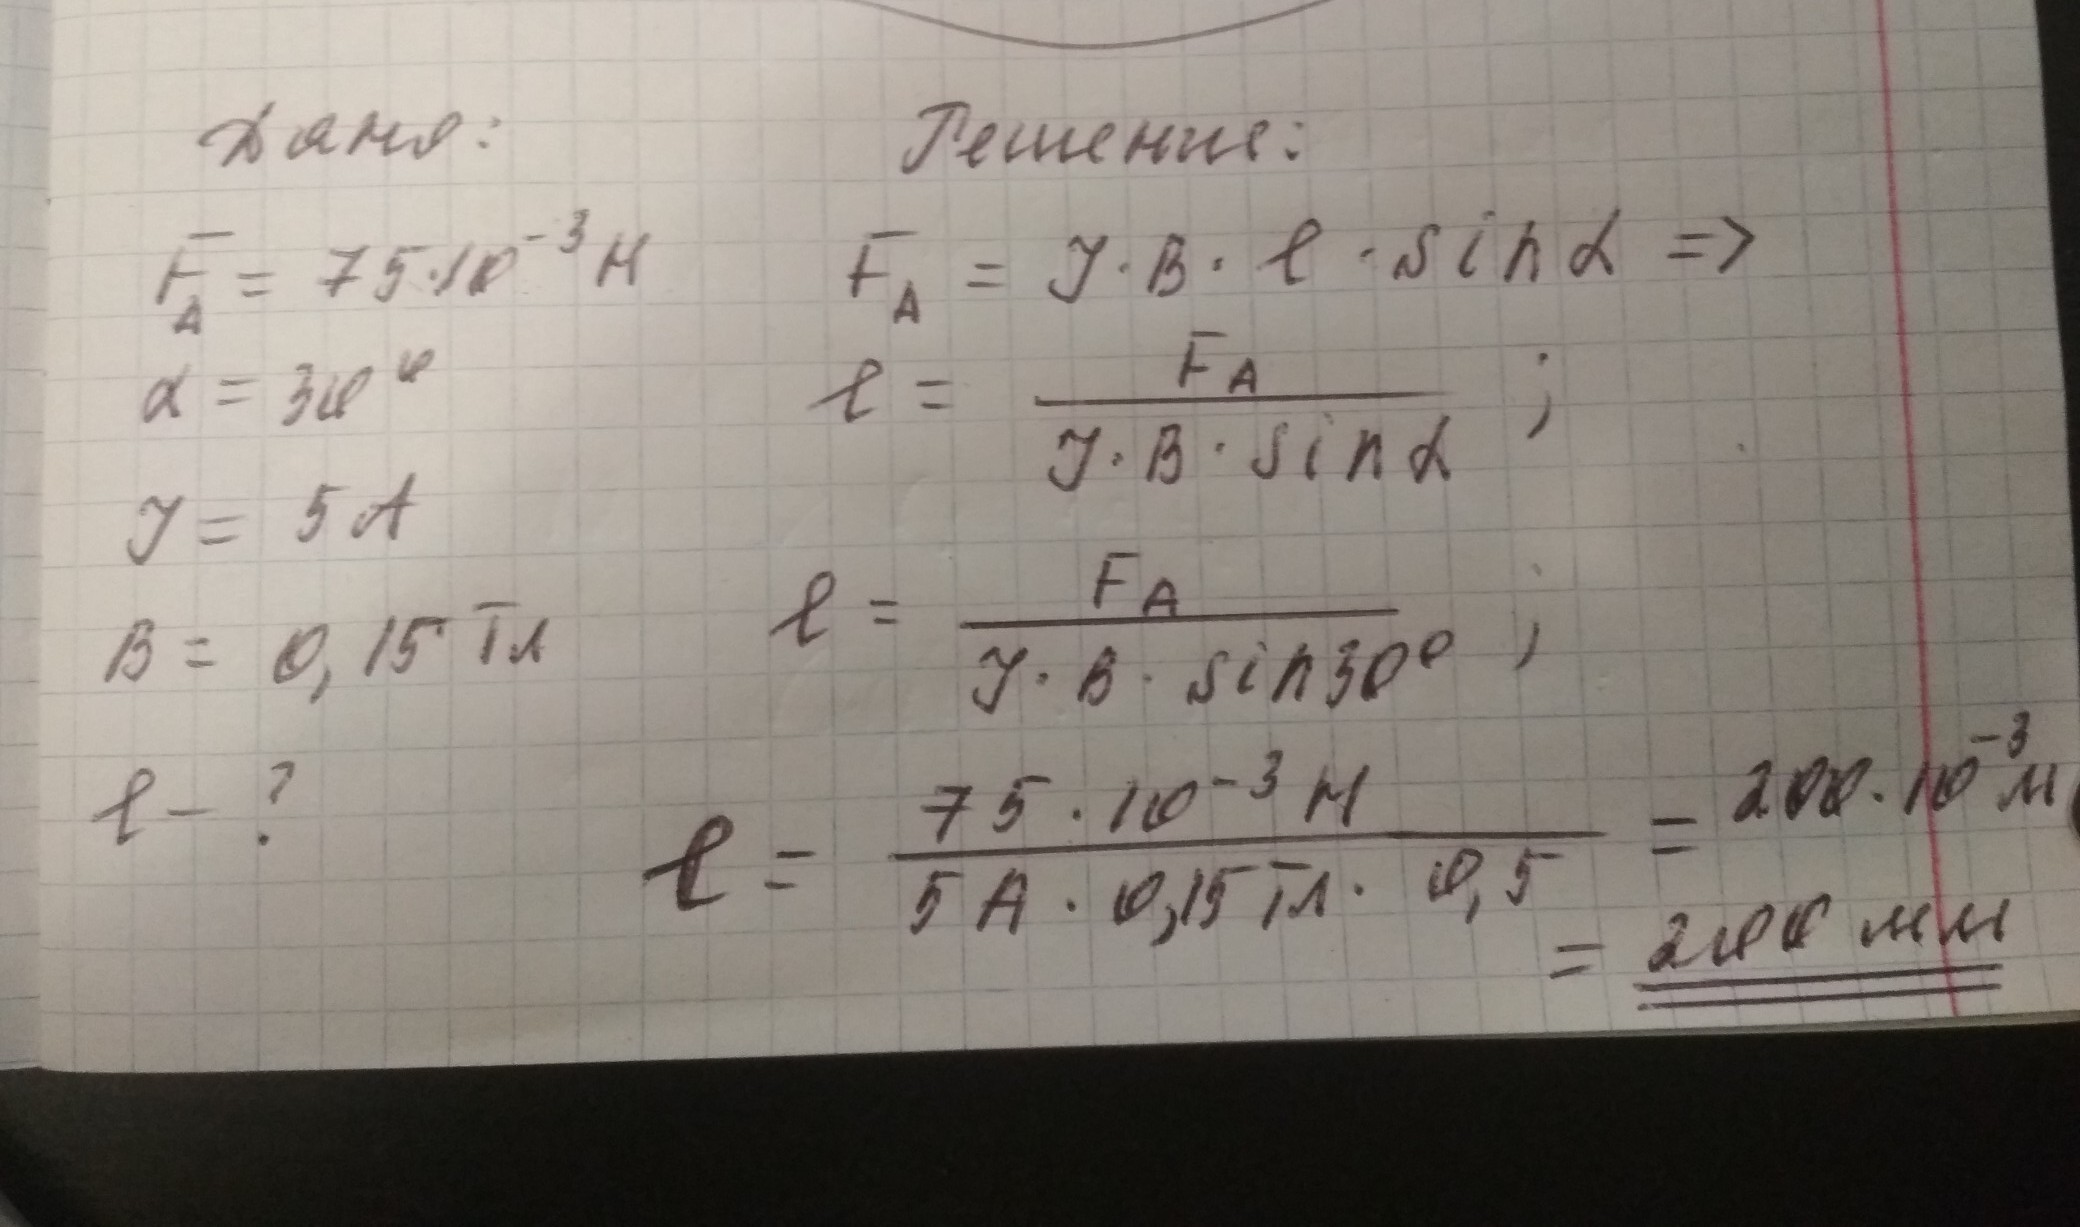 Дано:
F_A = 75·10⁻³ Н
α = 30⁰
I = 5 А
B = 0,15 Тл
l — ?
Решение:
F_A = I · B · l · sin α =>
l = F_A / (I · B · sin α) ;
l = F_A / (I · B · sin 30⁰) ;
l = (75 · 10⁻³ Н) / (5 А · 0,15 Тл · 0,5) = 200 · 10⁻³ м
= 200 мм